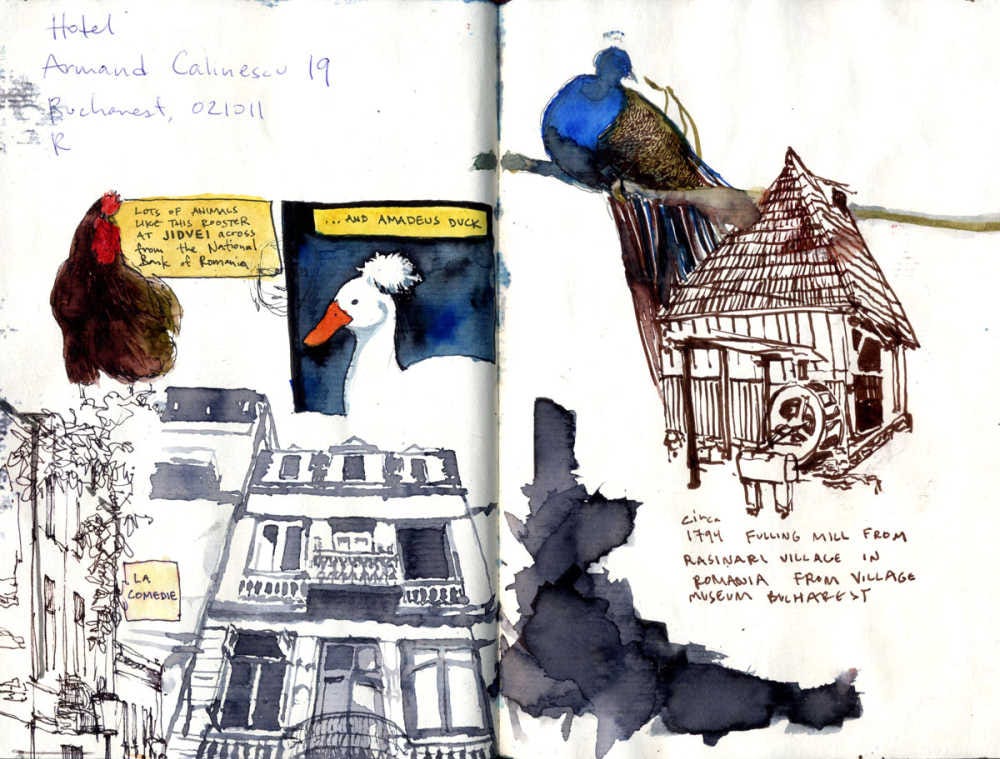 Hotel
Armand Calinescu 19
Bucharest, 021011
R
LOTS OF ANIMALS
LIKE THIS ROOSTER
AT JIDVEI ACROSS
from the National
Bank of Romania
...AND AMADEUS DUCK
LA
COMEDIE
circa
1794 FULLING MILL FROM
RASINARI VILLAGE IN
ROMANIA FROM VILLAGE
MUSEUM BUCHAREST